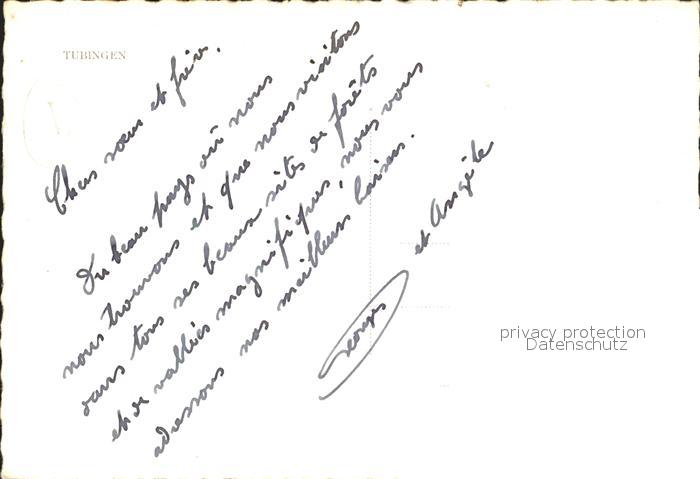 TUBINGEN
Chers sœur et frère,
Du beau pays où nous
nous trouvons et que nous visitons
dans tous ses beaux sites de forêts
et de vallées magnifiques, nous vous
adressons nos meilleurs baisers.
Georges et Angèle
privacy protection
Datenschutz